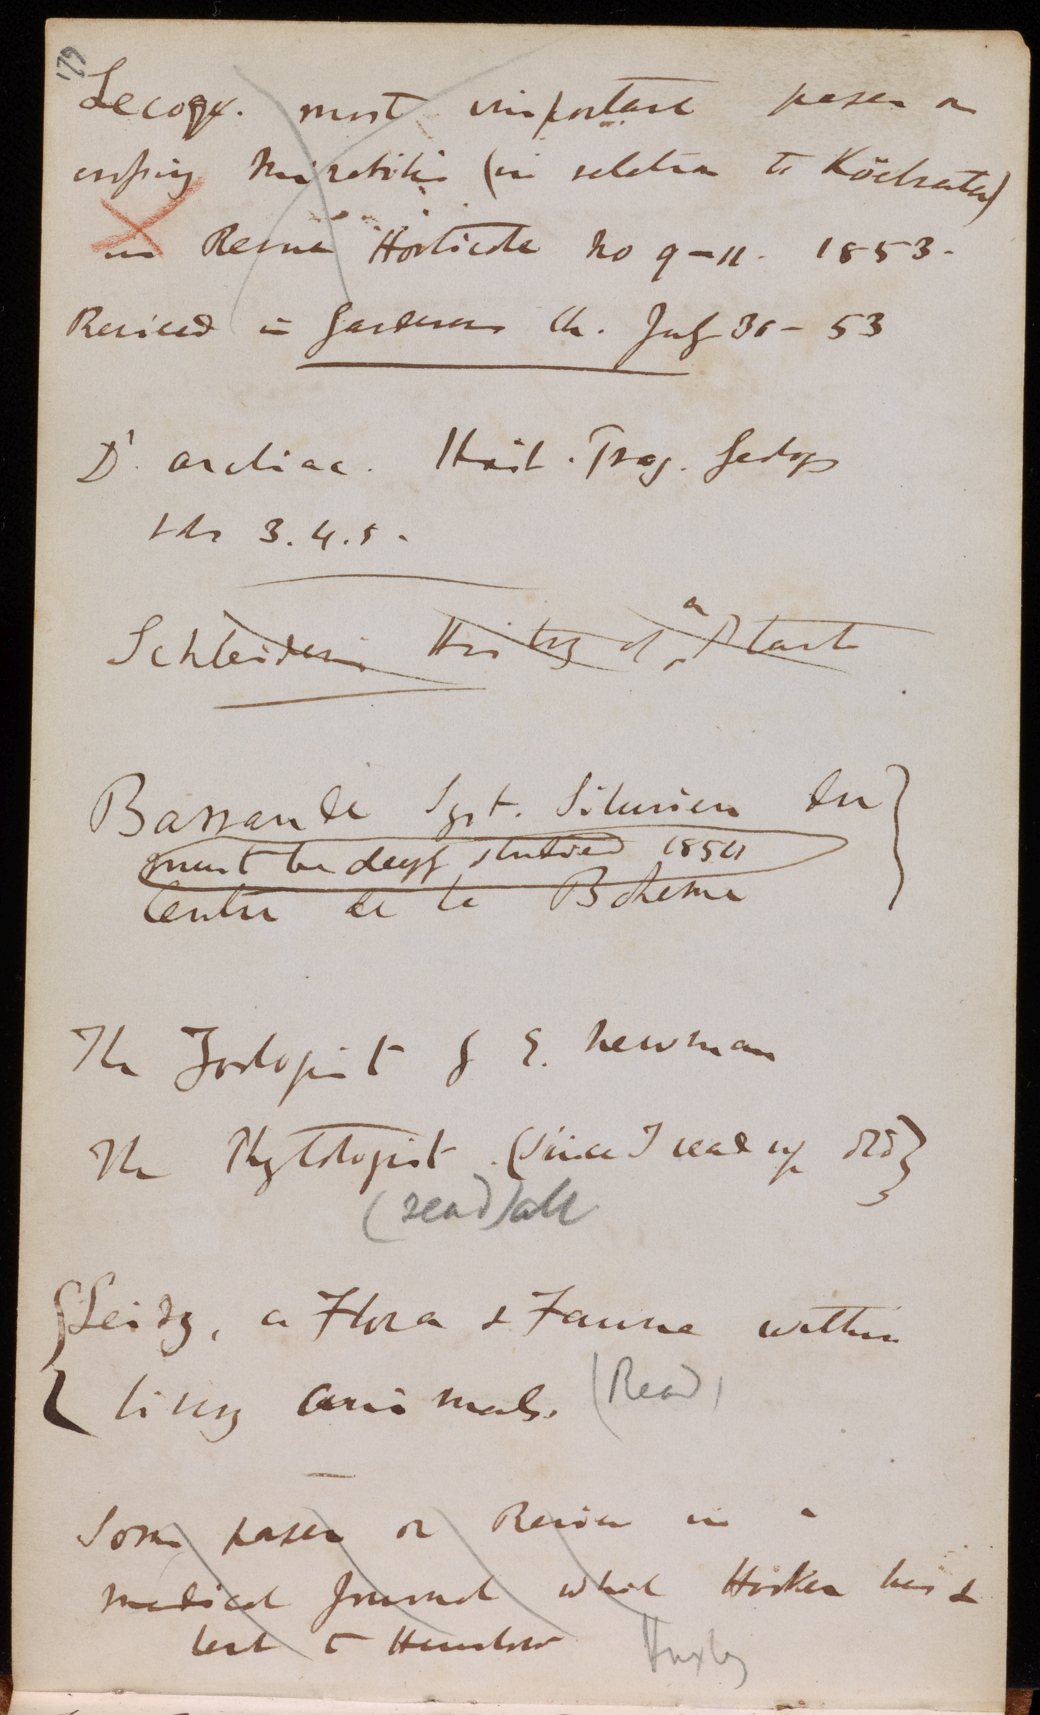 179
Lecoq. most important paper on
crossing Mirabilis (in relation to Kölreuter)
in Revue Horticole No 9–11. 1853.
Reviewed in Gardeners Ch. July 30 – 53
D'archiac. Hist. Prog. Geology
vols 3. 4. 5.
Schleiden History of a Plant
Barrande Syst. Silurien du
must be deeply studied 1854
Centre de la Boheme
The Zoologist of E. Newman
The Phytologist (since I read up old)
(read) all
Leidy, a Flora & Fauna within
living animals. (Read)
Some paper or Review in a
medical Journal which Hooker has &
lent to Henslow Huxley